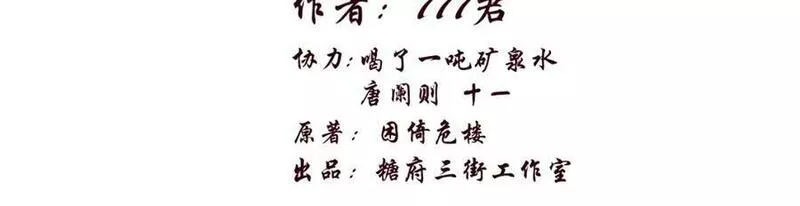 作者：777君
协力：喝了一吨矿泉水
唐阑则 十一
原著：困倚危楼
出品：糖府三街工作室